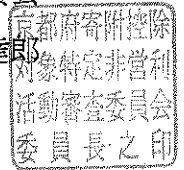 京都府寄附控除
対象特定非営利
活動審査委員会
委員長之印
郎